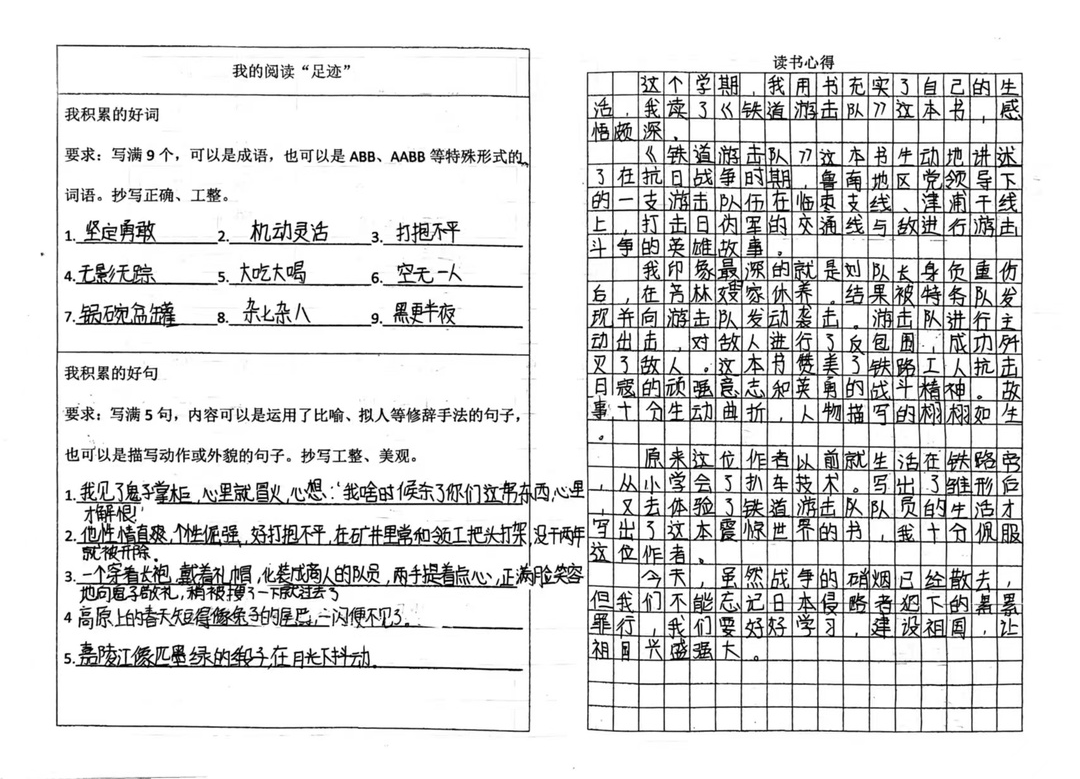 我的阅读“足迹”
我积累的好词
要求：写满9个，可以是成语，也可以是ABB、AABB等特殊形式的
词语。抄写正确、工整。
1. 坚定勇敢 2. 机动灵活 3. 打抱不平
4. 无影无踪 5. 大吃大喝 6. 空无一人
7. 锅碗盆罐 8. 杂七杂八 9. 黑更半夜
我积累的好句
要求：写满5句，内容可以是运用了比喻、拟人等修辞手法的句子，
也可以是描写动作或外貌的句子。抄写工整、美观。
1. 我见了鬼子掌柜，心里就冒火，心想：‘我啥时候杀了你们这帮东西，心里
才解恨！’
2. 他性情直爽，个性倔强，好打抱不平，在矿井里常和领工把头打架，没干两年
就被开除。
3. 一个穿着长袍，戴着礼帽，化装成商人的队员，两手提着点心，正满脸笑容
地向鬼子敬礼，稍被搜了一下就过去了
4 高原上的春天短得像兔子的尾巴，一闪便不见了。
5. 嘉陵江像匹墨绿的缎子，在月光下抖动.
读书心得
这个学期，我用书充实了自己的生
活，我读了《铁道游击队》这本书，感
悟颇深。
《铁道游击队》这本书生动地讲述
了在抗日战争时期，鲁南地区党领导下
的一支游击队伍在临枣支线、津浦干线
上，打击日伪军的交通线与敌进行游击
斗争的英雄故事。
我印象最深的就是刘队长身负重伤
后，在芳林嫂家休养。结果被特务队发
现并向游击队发动袭击。游击队进行主
动出击，对敌人进行了反包围，成功歼
灭了敌人。这本书赞美了铁路工人抗击
日寇的顽强意志和英勇的战斗精神。故
事十分生动曲折，人物描写的栩栩如生
。
原来这位作者以前就生活在铁路旁
，从小学会了扒车技术。写出了雏形后
，又去体验了铁道游击队队员的生活才
写出了这本震惊世界的书，我十分佩服
这位作者。
今天，虽然战争的硝烟已经散去，
但我们不能忘记日本侵略者犯下的累累
罪行，我们要好好学习，建设祖国，让
祖国兴盛强大。